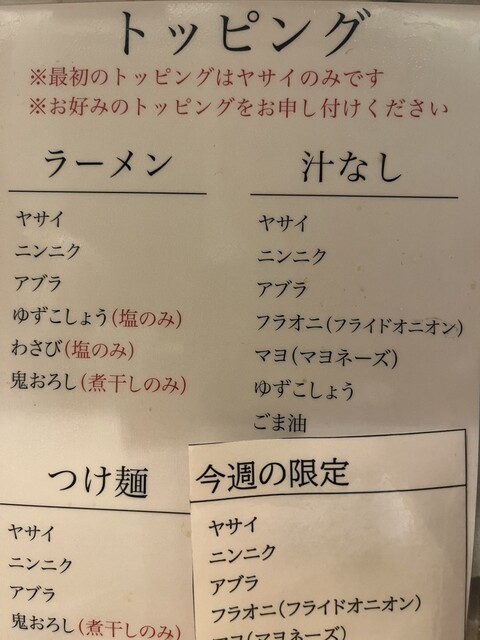 トッピング
※最初のトッピングはヤサイのみです
※お好みのトッピングをお申し付けください
ラーメン
ヤサイ
ニンニク
アブラ
ゆずこしょう(塩のみ)
わさび(塩のみ)
鬼おろし(煮干しのみ)
汁なし
ヤサイ
ニンニク
アブラ
フラオニ(フライドオニオン)
マヨ(マヨネーズ)
ゆずこしょう
ごま油
つけ麺
ヤサイ
ニンニク
アブラ
鬼おろし(煮干しのみ)
今週の限定
ヤサイ
ニンニク
アブラ
フラオニ(フライドオニオン)
マヨ(マヨネーズ)